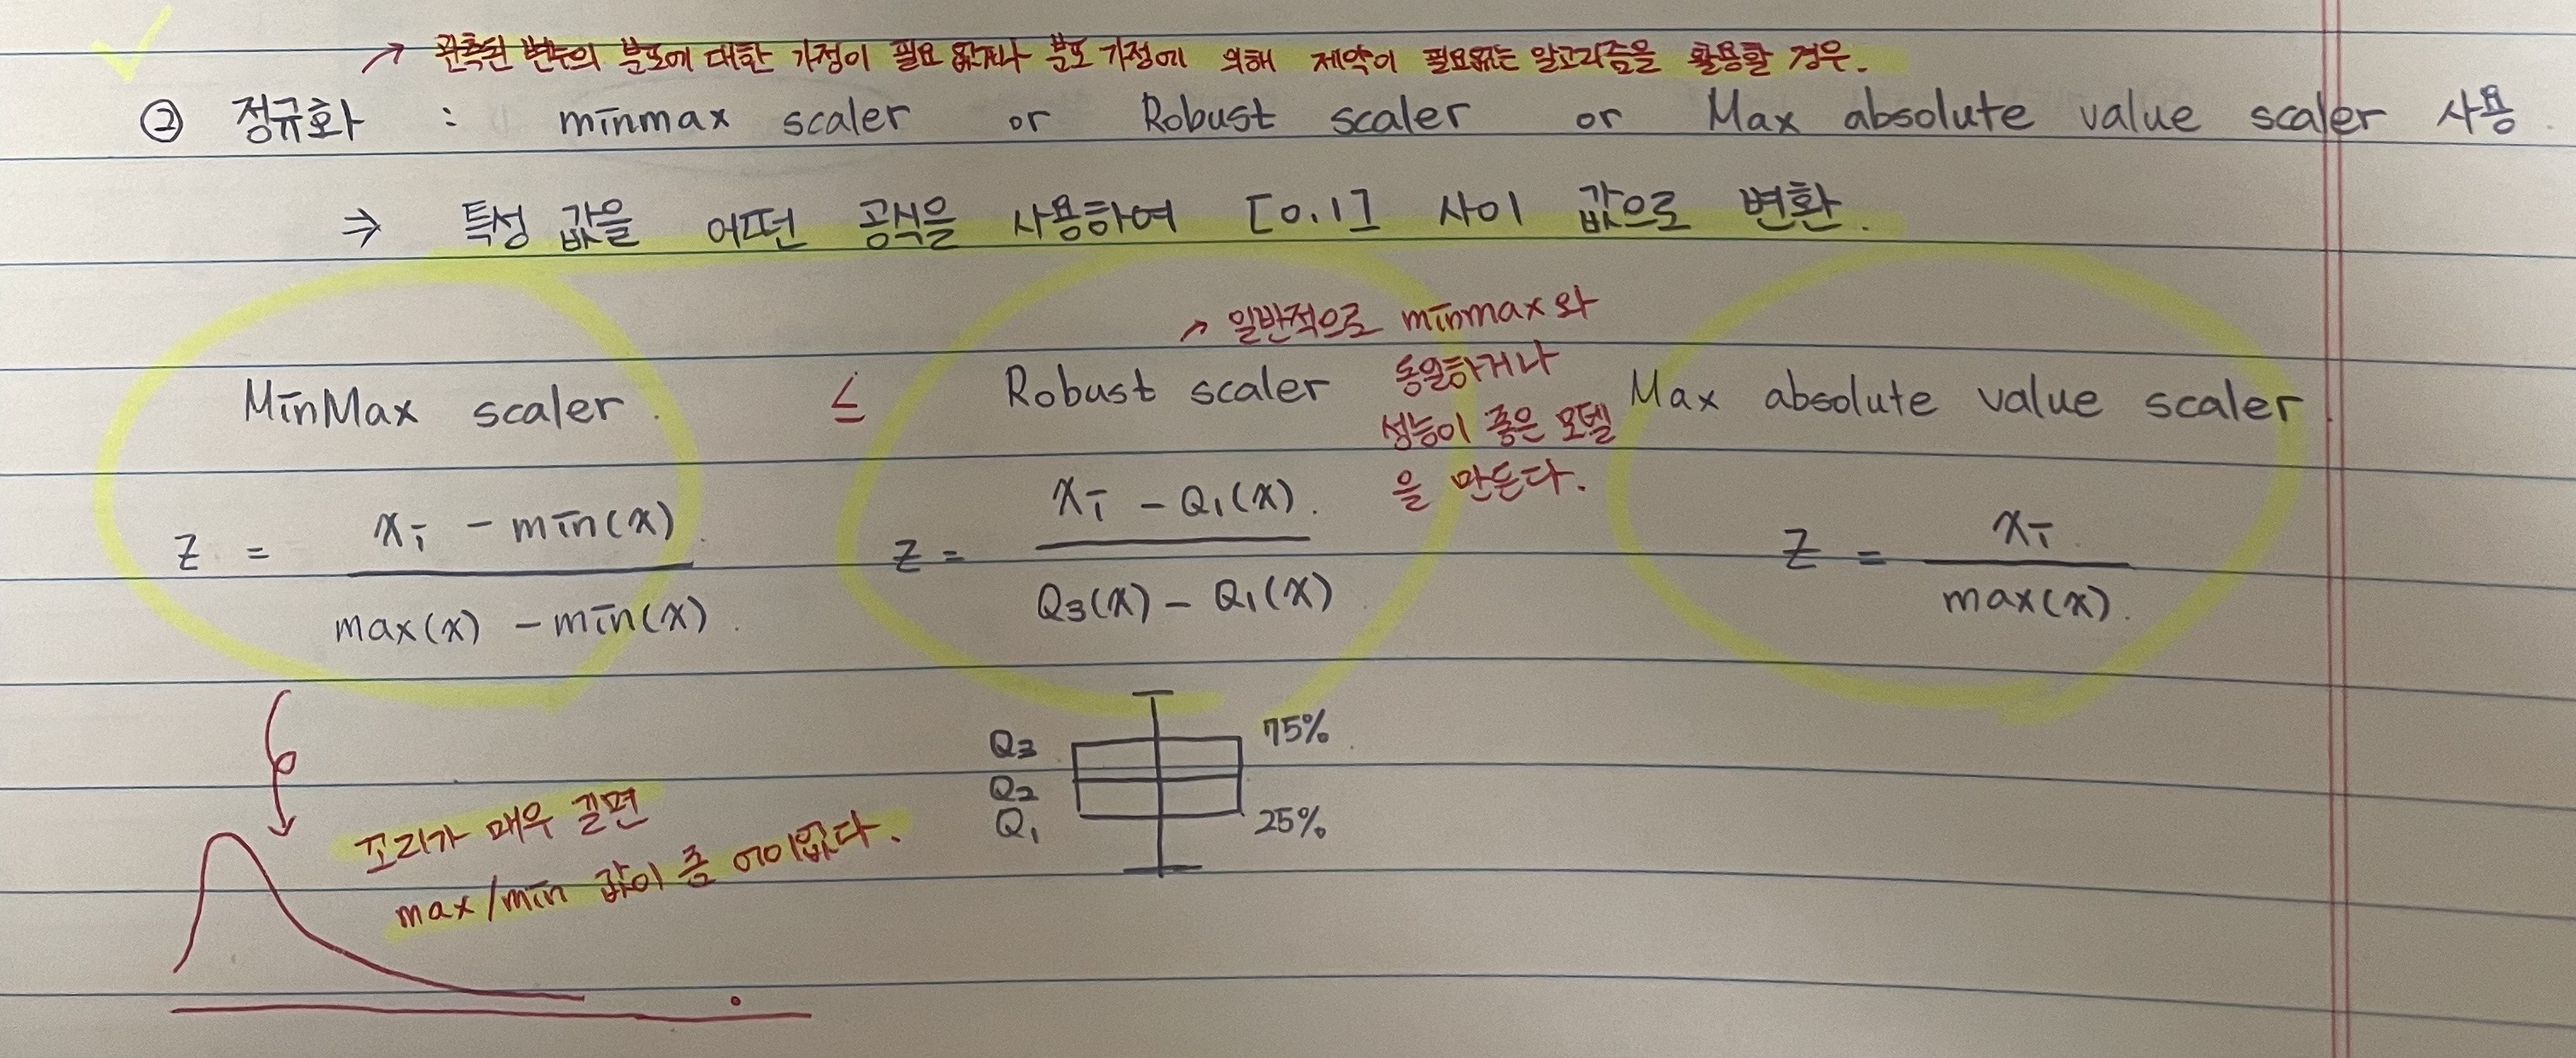 → 관측된 변수의 분포에 대한 가정이 필요 없거나 분포 가정에 의해 제약이 필요없는 알고리즘을 활용할 경우.
② 정규화 : minmax scaler or Robust scaler or Max absolute value scaler 사용.
⇒ 특성 값을 어떤 공식을 사용하여 [0.1] 사이 값으로 변환.
→ 일반적으로 minmax와
동일하거나
성능이 좋은 모델
을 만든다.
MinMax scaler. ≤ Robust scaler Max absolute value scaler.
Z = (xi - min(x)) / (max(x) - min(x)).
Z = (xi - Q1(x)) / (Q3(x) - Q1(x))
Z = xi / max(x).
Q3 75%
Q2
Q1 25%
꼬리가 매우 길면
max/min 값이 좀 어이없다.